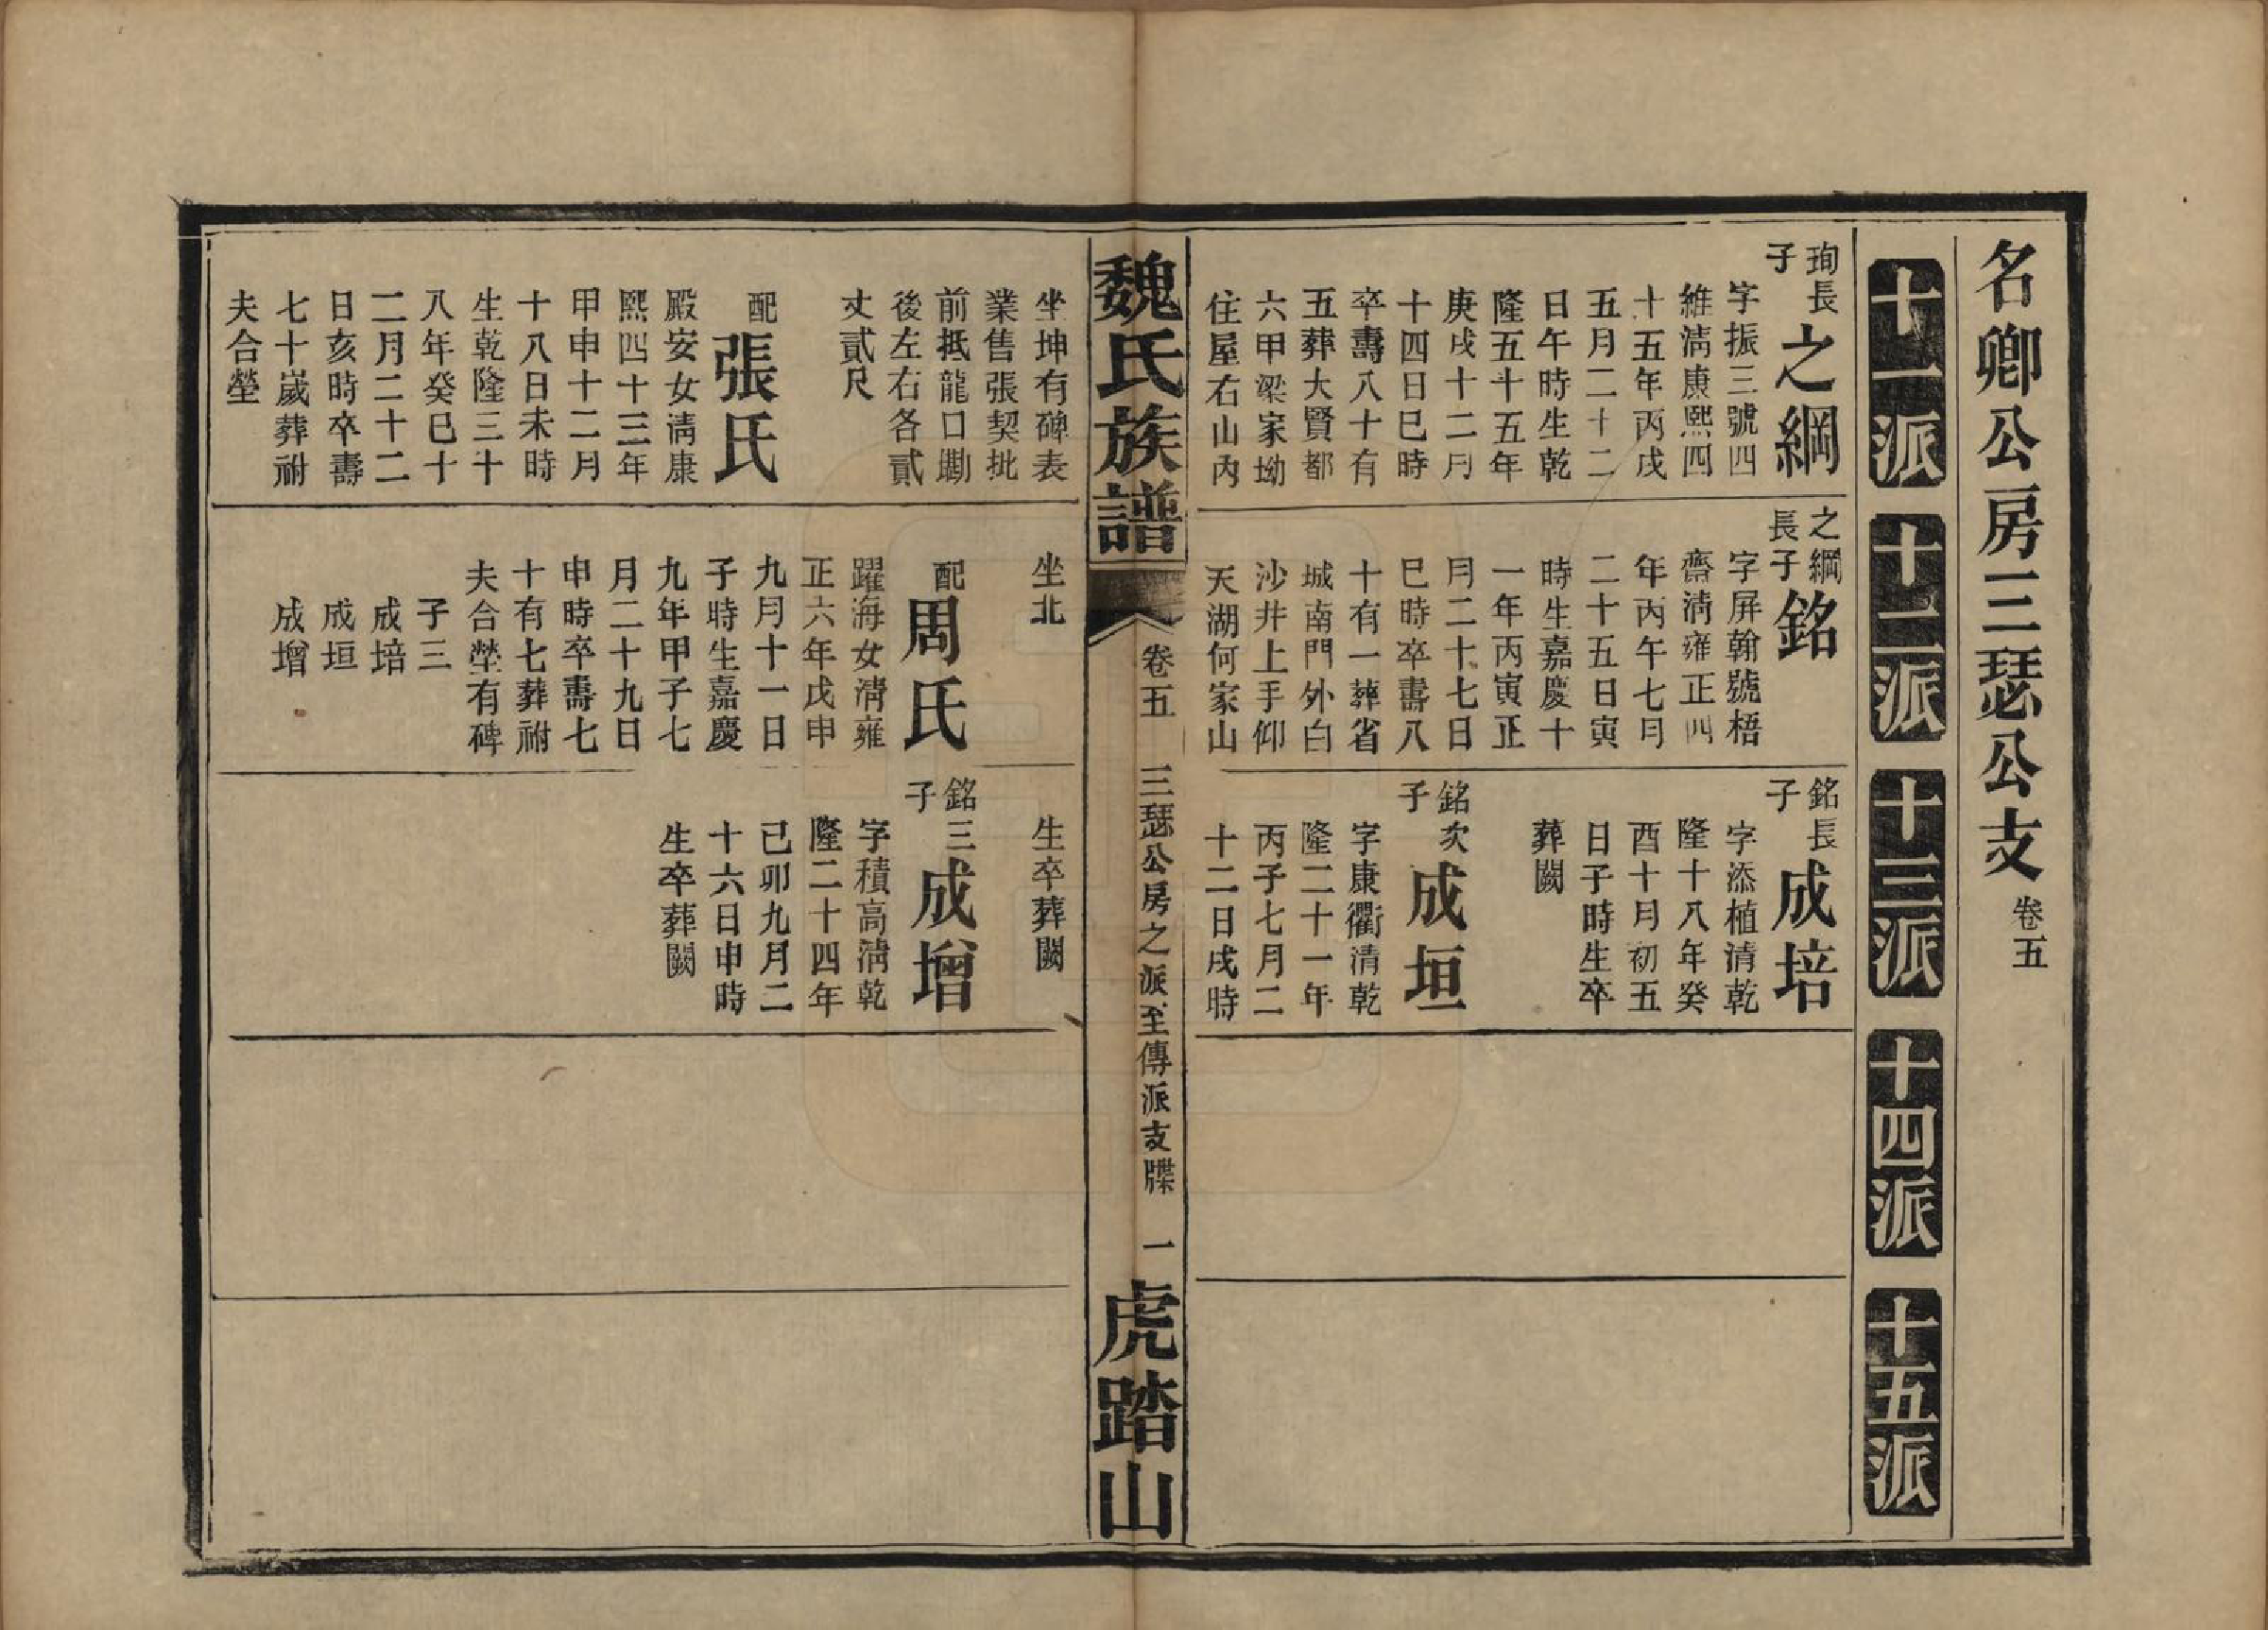 名卿公房三瑟公支 卷五
十一派
十二派
十三派
十四派
十五派
珣長
子
之綱
字振三號四
維清康熙四
十五年丙戌
五月二十二
日午時生乾
隆五十五年
庚戌十二月
十四日巳時
卒壽八十有
五葬大賢都
六甲梁家坳
住屋右山內
坐坤有碑表
業售張契批
前抵龍口勘
後左右各貳
丈貳尺
配
張氏
殿安女清康
熙四十三年
甲申十二月
十八日未時
生乾隆三十
八年癸巳十
二月二十二
日亥時卒壽
七十歲葬祔
夫合塋
之綱
長子
銘
字屏翰號梧
齋清雍正四
年丙午七月
二十五日寅
時生嘉慶十
一年丙寅正
月二十七日
巳時卒壽八
十有一葬省
城南門外白
沙井上手仰
天湖何家山
坐北
配
周氏
躍海女清雍
正六年戊申
九月十一日
子時生嘉慶
九年甲子七
月二十九日
申時卒壽七
十有七葬祔
夫合塋有碑
子三
成培
成垣
成增
銘長
子
成培
字添植清乾
隆十八年癸
酉十月初五
日子時生卒
葬闕
銘次
子
成垣
字康衢清乾
隆二十一年
丙子七月二
十二日戌時
生卒葬闕
銘三
子
成增
字積高清乾
隆二十四年
己卯九月二
十六日申時
生卒葬闕
魏氏族譜
卷五
三瑟公房之派至傳派支牒
一
虎踏山